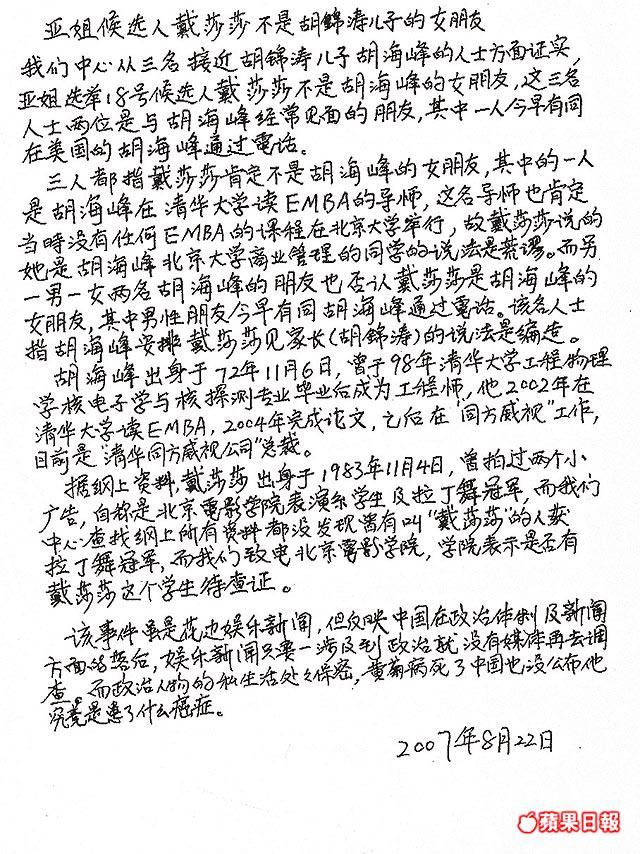 亚姐候选人戴莎莎不是胡錦涛儿子的女朋友
我们中心从三名接近胡锦涛儿子胡海峰的人士方面证实,
亚姐选举18号候选人戴莎莎不是胡海峰的女朋友,这三名
人士两位是与胡海峰经常见面的朋友,其中一人今早有同
在美国的胡海峰通过電话。
三人都指戴莎莎肯定不是胡海峰的女朋友,其中的一人
是胡海峰在清华大学读EMBA的导师,这名导师也肯定
当時没有任何EMBA的课程在北京大学举行,故戴莎莎说的
她是胡海峰北京大学商业管理的同学的说法是荒谬。而另
一男一女两名胡海峰的朋友也否认戴莎莎是胡海峰的
女朋友,其中男性朋友今早有同胡海峰通过電话。该名人士
指胡海峰安排戴莎莎见家长(胡錦涛)的说法是编造。
胡海峰出身于72年11月6日,曾于98年清华大学工程物理
学核电子学与核探测专业毕业后成为工程师,他2002年在
清华大学读EMBA,2004年完成论文,之后在"同方威视"工作,
目前是"清华同方威视公司"总裁。
据网上资料,戴莎莎出身于1983年11月4日,曾拍过两个小
广告,自称是北京電影学院表演系学生及拉丁舞冠军,而我们
中心查找網上所有资料都没发现曾有叫"戴莎莎"的人获
拉丁舞冠军,而我们致电北京電影学院,学院表示是否有
戴莎莎这个学生待查证。
该事件虽是花边娱乐新闻,但反映中国在政治体制及新闻
方面的落后,娱乐新闻只要一涉及到政治就没有媒体再去调
查。而政治人物的私生活处处保密,黄菊病死了中国也没公布他
究竟是患了什么癌症。
2007年8月22日
蘋果日報